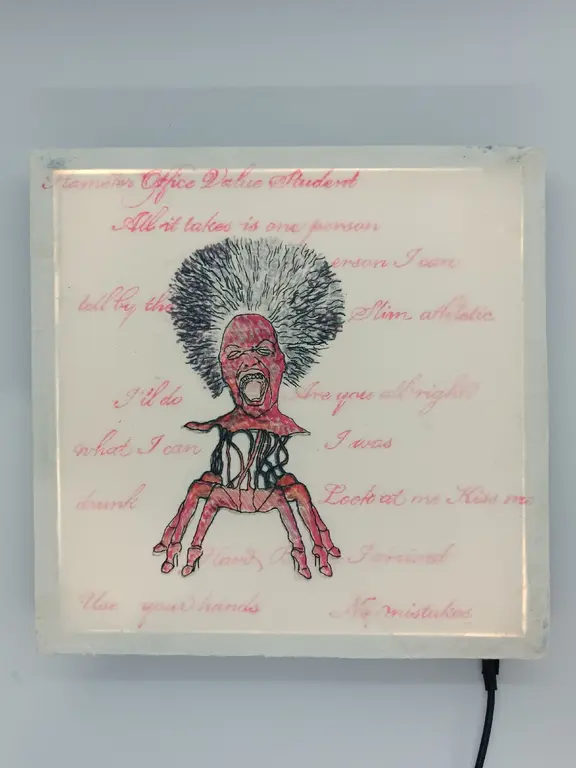 Office Value Student
All it takes is one person
erson I can
tell by the Slim athletic
I'll do Are you all right
what I can I was
drunk Look at me Kiss me
Hand
Use your hands No mistakes